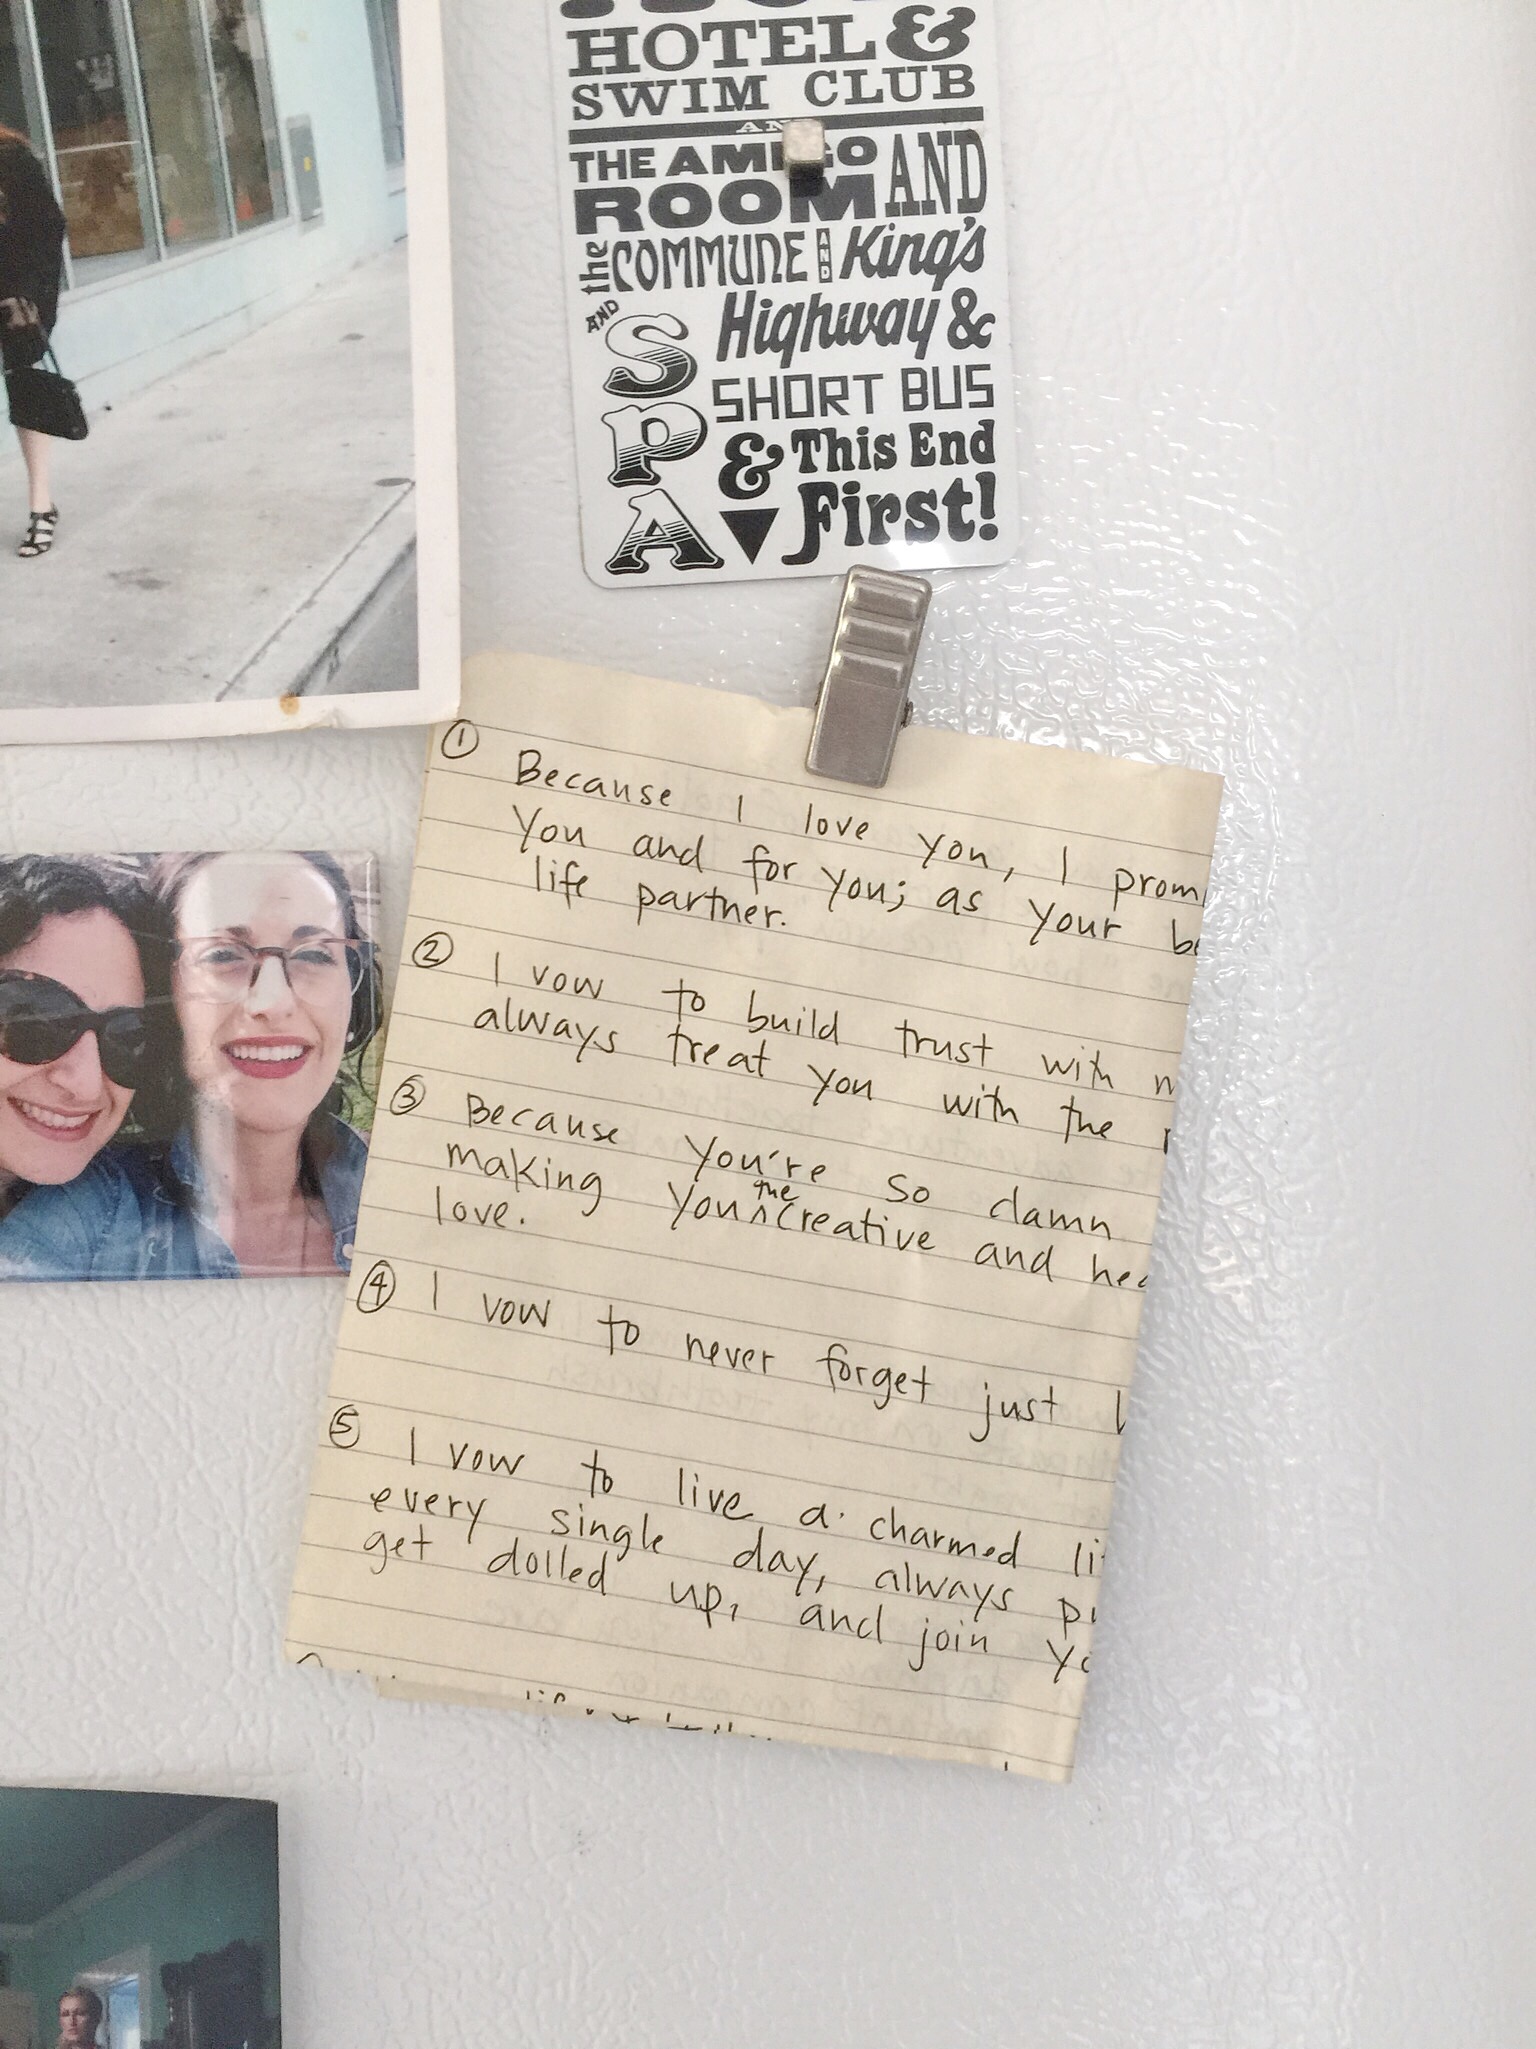 HOTEL &
SWIM CLUB
AND
THE AMIGO
ROOM AND
the COMMUNE AND King's
AND Highway &
SPA
SHORT BUS
& This End
First!
① Because I love you, I prom
you and for you; as your be
life partner.
② I vow to build trust with
always treat you with the
③ Because you're so damn
making you the creative and hea
love.
④ I vow to never forget just
⑤ I vow to live a charmed li
every single day, always
get dolled up, and join yo